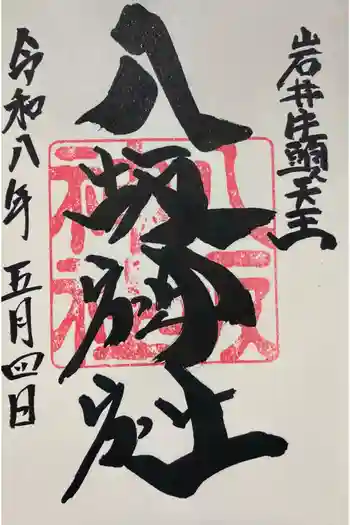 岩井牛頭天王
八坂神社
令和八年 五月四日
八坂神社